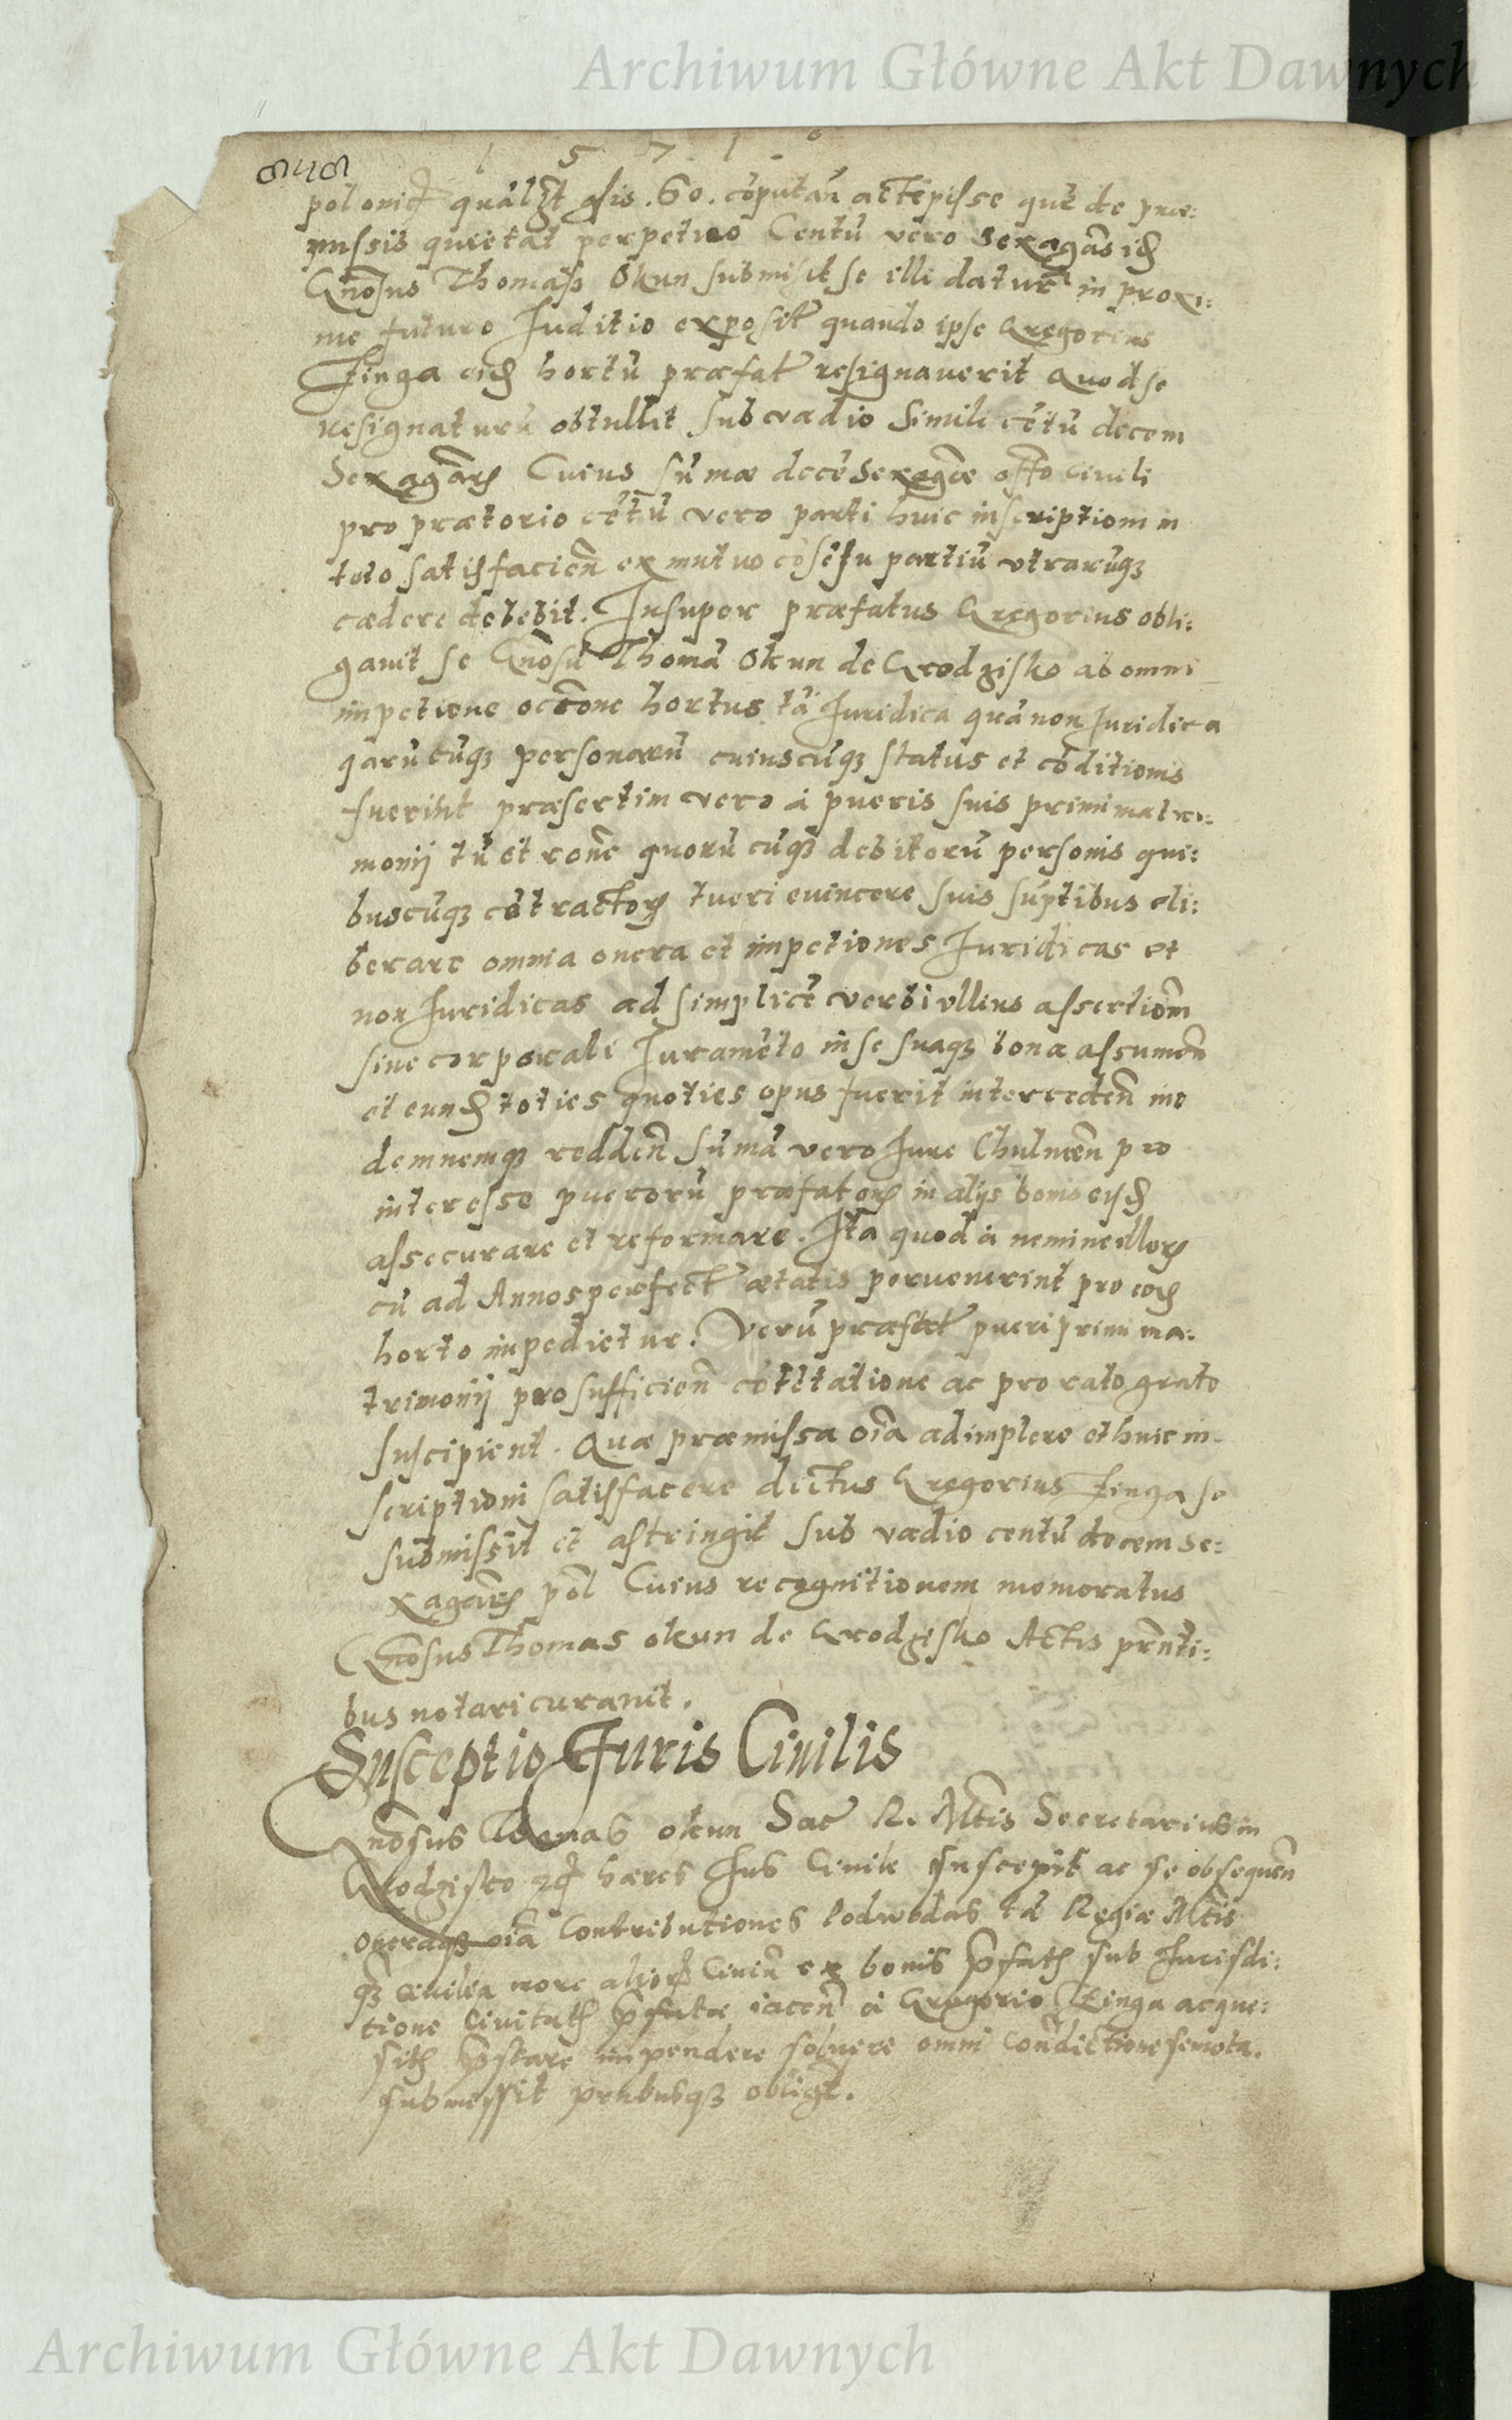 Archiwum Główne Akt Dawnych
1 5 7 1
polonic quãlꝫt gsis .60. cõputañ accepisse quẽ de præ:
missis quietat perpetuo Centũ vero sexagãs id
Gnõsus Thomass Okun submisit se illi daturũ in proxi:
me futuro Iuditio exposit quando ipse Gregorius
Finga eid hortũ præfat resignaverit Quod se
resignaturũ obtullit sub vadio simili cẽtũ decem
Sexagẽarꝫ Cuius sũmæ decẽ Sexagẽæ offo civili
pro prætorio cẽtũ vero parti huic inscriptioni in
toto satisfacieñ ex mutuo cõsẽsu partiũ utrarũqꝫ
cædere debebit. Insuper præfatus Gregorius obli:
gavit se Gnõsũ Thomã Okun de Grodzisko ab omni
impetione occõne hortus tã Iuridica quã non Iuridica
qarũcũqꝫ personarũ cuiuscũqꝫ status et cõditionis
fuerint præsertim vero à pueris suis primi matri:
monij tũ et rõne quorũcũqꝫ debitorũ personis qui:
buscũqꝫ cõtractorꝫ tueri evincere suis sũptibus eli:
berare omnia onera et impetiones Iuridicas et
non Iuridicas ad simplicẽ verbi ullius assertiõm
sine corporali Iuramẽto in se suaqꝫ bona assumeñ
et eund toties quoties opus fuerit interceden ine
demnemqꝫ reddeñ Sũmã vero Iure Chulmeñ pro
interesse puerorũ præfatorꝫ in alijs bonis eisd
assecurare et reformare. Ita quod à nemine illorꝫ
cũ ad Annos perfect ætatis pervenerint pro eod
horto impedietur. Verũ præfat pueri primi ma:
trimonij pro sufficieñ cõtẽtatione ac pro rato grato
suscipient. Quæ præmissa oĩa adimplere et huic in-
scriptioni satisfacere dictus Gregorius Finga se
submissit et astringit sub vadio centũ decem se:
xagẽarꝫ põl Cuius recognitionem memoratus
Gnõsus Thomas okun de Grodzisko Actis prñti:
bus notari curavit.
Susceptio Iuris Civilis
Gnõsus Thomas okun Sac R. Mtis Secretarius in
Grodzisko hæres Ius Civile suscepit ac se obsequeñ
oneraqꝫ oĩa Contributiones Podwodas tã Regiæ Mtis
qꝫ civilia more aliorꝫ Civiũ ex bonis pfatis sub Iurisdi:
tione Civitatis pfatæ iaceñ à Gregorio Finga acqui:
sitis pstare impendere solvere omni Condictione semota.
submissit pñbusqꝫ obligt.
Archiwum Główne Akt Dawnych